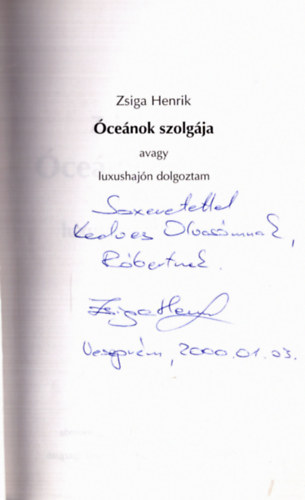 Zsiga Henrik
Óceánok szolgája
avagy
luxushajón dolgoztam
Szeretettel
Kedves Olvasómnak,
Róbertnek.
Zsiga Hen
Veszprém, 2000.01.03.